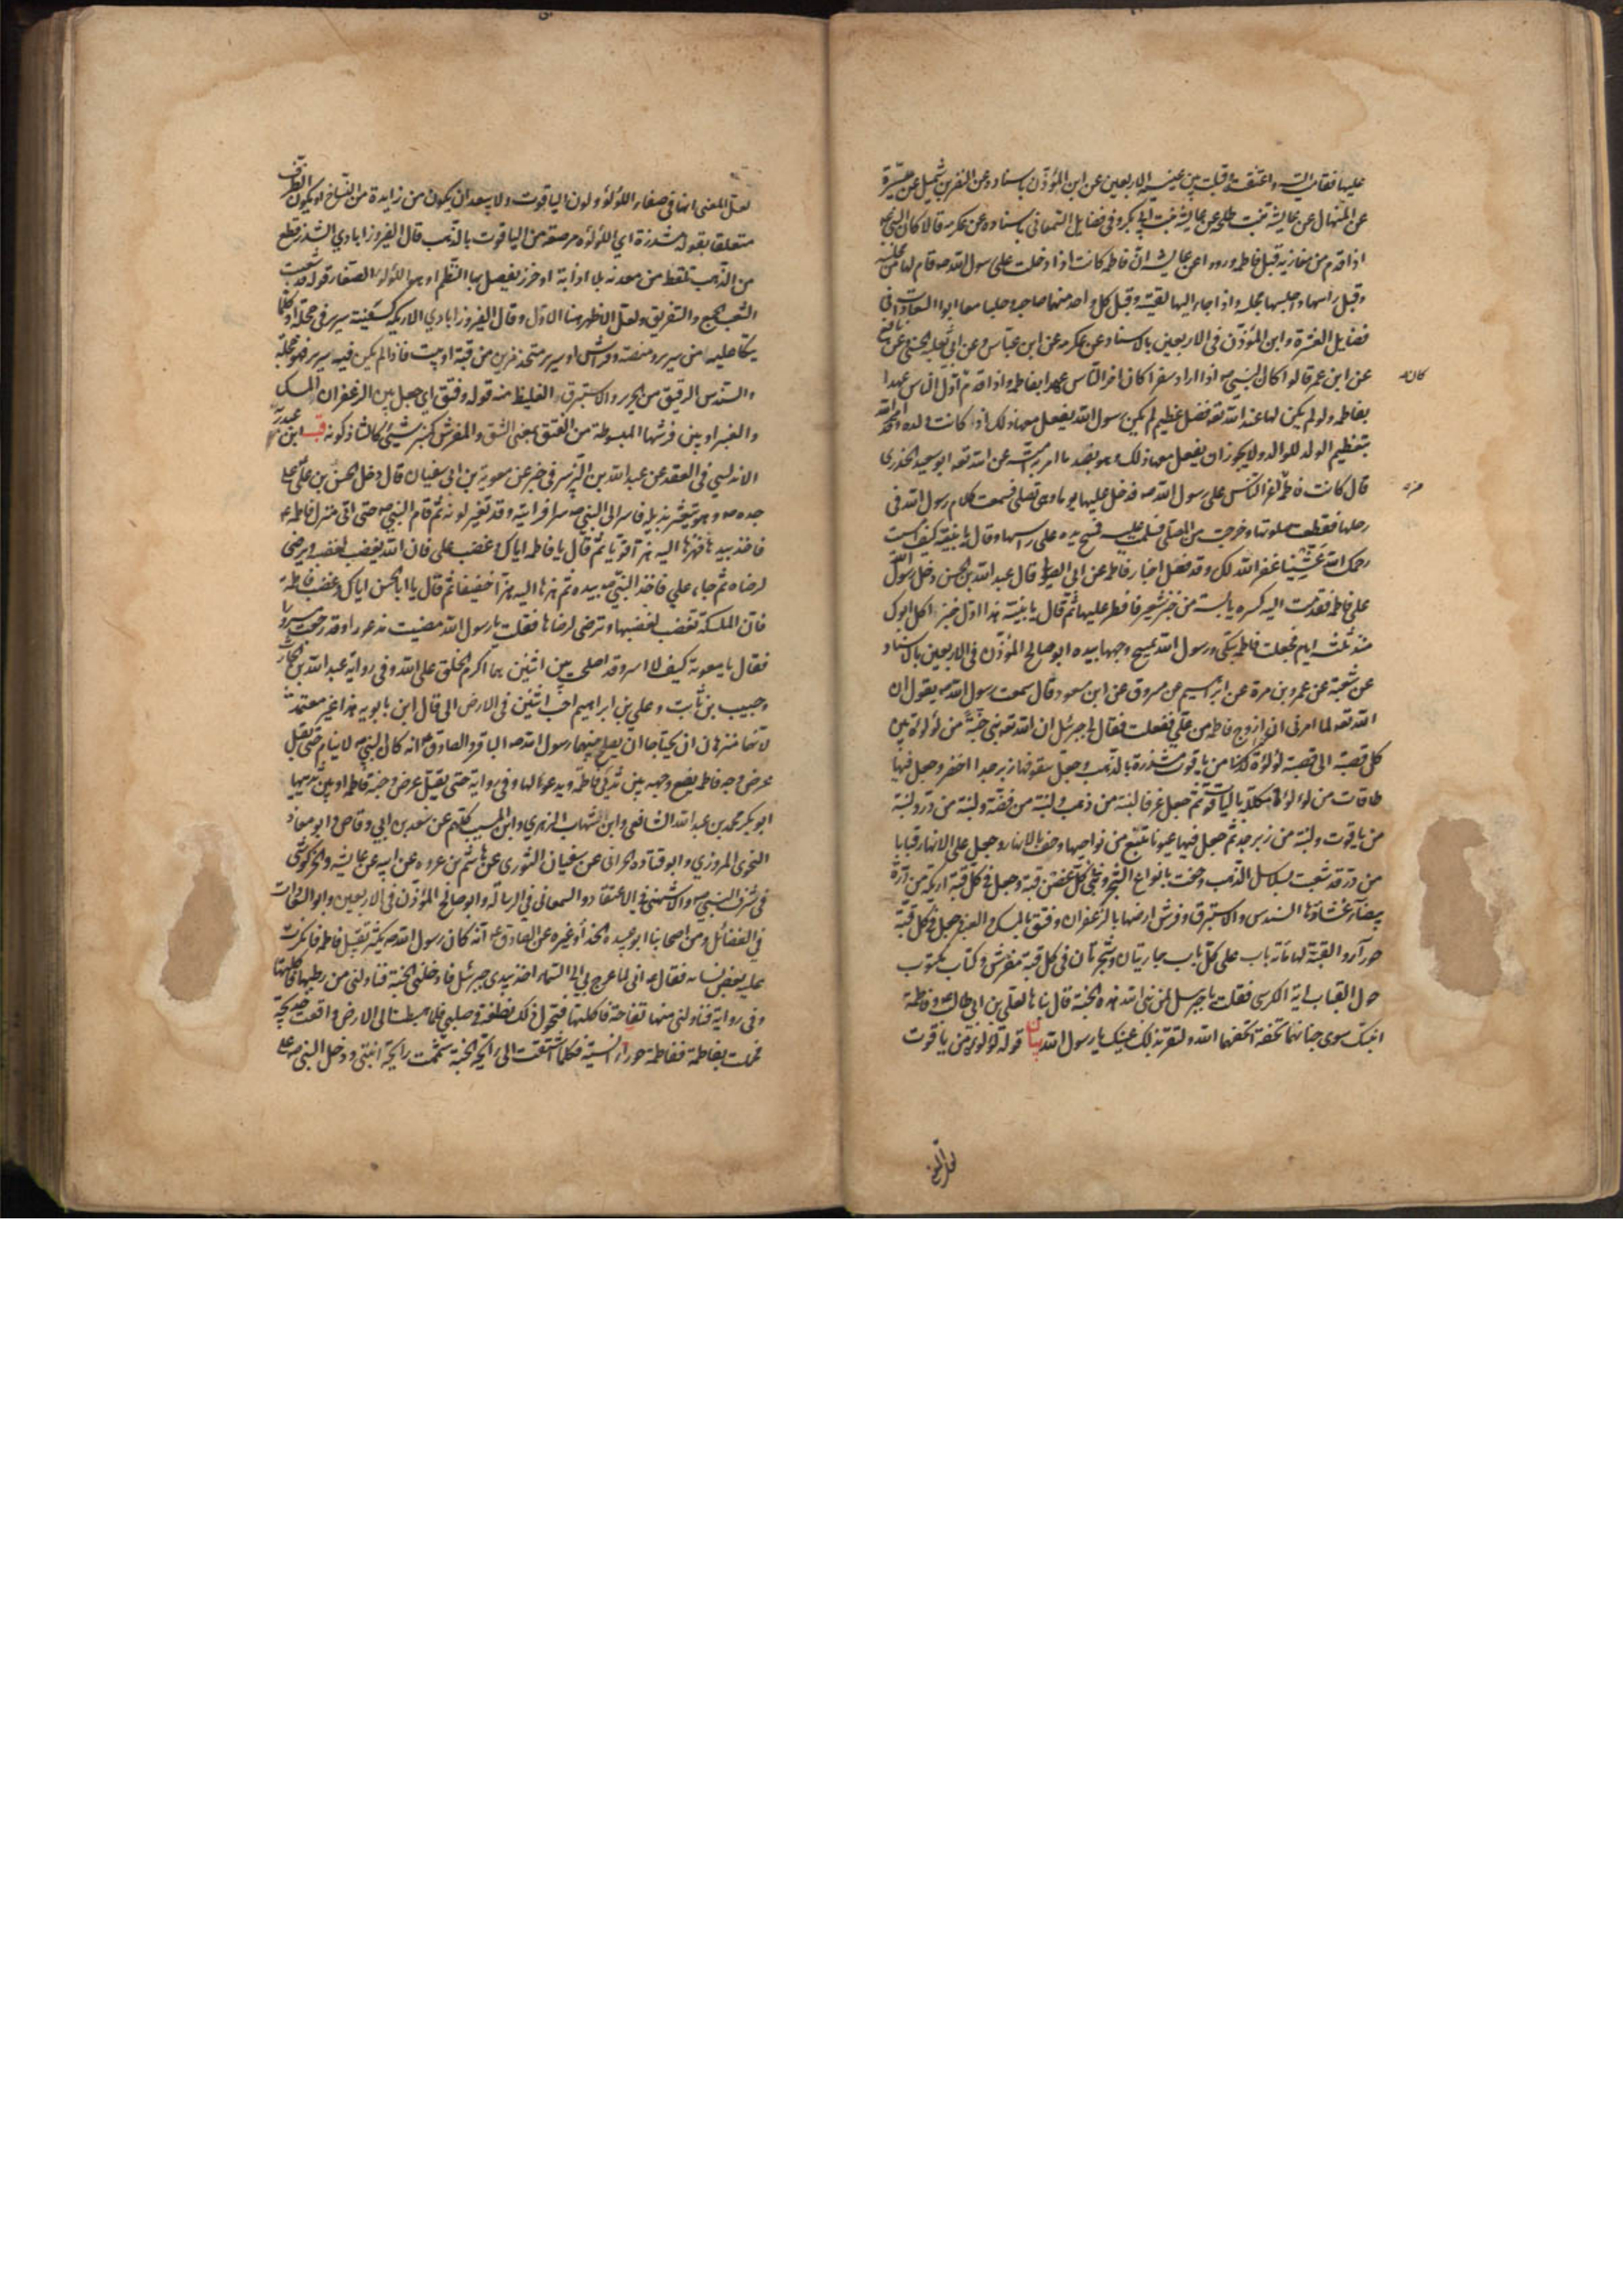 عليها فقامت اليه واعتنقته وقبلت بين عينيه الاربعين عن ابن المؤذن باسناده عن النضر بن شميل عن ميسرة
عن المنهال عن عايشة بنت طلحه عن عايشه بنت ابي بكر وفي فضايل السمعاني باسناده عن عكرمه قالا كان النبي ص
اذا قدم من مغازيه قبل فاطمه وروو اعن عايشه ان فاطمه كانت اذا دخلت على رسول الله ص قام لها من مجلسه
وقبل راسها واجلسها مجلسه واذا جاء اليها لقيته وقبل كل واحد منهما صاحبه وجلسا معا ابوا السعادات في
فضايل العشرة وابن المؤذن في الاربعين بالاسناد عن عكرمه عن ابن عباس وعن ابي ثعلبه الخشني وعن نافع
عن ابن عمر قالوا كان النبي ص اذا اراد سفرا كان اخر الناس عهدا بفاطمه واذا قدم كان اول الناس عهدا
بفاطمه ولو لم يكن لها عند الله تعه فضل عظيم لم يكن رسول الله يفعل معها ذلك اذ كانت ولده وامر الله
بتعظيم الولد للوالد ولا يجوز ان يفعل معها ذلك وهو بضد ما امر به امته عن الله تعه ابو سعيد الخدري
قال كانت فاطمه اعز الناس على رسول الله ص فدخل عليها يوما وهي تصلى فسمعت كلام رسول الله في
رحلها فقطعت صلوتها وخرجت من المصلى فسلمت عليه فمسح يده على راسها وقال يا بنيه كيف امسيت
رحمك الله عشينا غفر الله لك وقد فعل اخبار فاطمه عن ابي الصولي قال عبد الله بن الحسن دخل رسول الله
على فاطمه فقدمت اليه كسره يابسة من خبز شعير فافطر عليها ثم قال يا بنية هذا اول خبز اكل ابوك
منذ ثلثه ايام فجعلت فاطمه تبكي ورسول الله يمسح وجهها بيده ابو صالح المؤذن في الاربعين بالاسناد
عن شعبة عن عمرو بن مرة عن ابراهيم عن مسروق عن ابن مسعود قال سمعت رسول الله ص يقول ان
الله تعه لما امرني ان ازوج فاطمه من علي ففعلت فقال لي جبرئيل ان الله تعه بنى جنة من لؤلؤة بين
كل قصبة الى قصبة لؤلؤة من ياقوت مشذرة بالذهب وجعل سقوفها زبرجدا اخضر وجعل فيها
طاقات من لؤلؤ مكللة بالياقوت ثم جعل غرفا لبنة من ذهب ولبنة من فضة ولبنة من در ولبنة
من ياقوت ولبنة من زبرجد ثم جعل فيها عيونا تنبع من نواحيها وحف بالانهار وجعل على الانهار قبابا
من در قد شعبت بسلاسل الذهب وحفت بانواع الشجر وبنى في كل غصن قبة وجعل في كل قبة اريكة من درة
بيضاء غشاؤها السندس والاستبرق وفرش ارضها بالزعفران وفتق بالمسك والعنبر وجعل في كل قبة
حوراء والقبة لها مائة باب على كل باب جاريتان وشجرتان في كل قبة مفرش وكتاب مكتوب
حول القباب اية الكرسي فقلت يا جبرئيل لمن بنى الله هذه الجنة قال بناها لعلي بن ابي طالب وفاطمة
ابنتك سوى جنانهما تحفة اتحفهما الله ولتقر بذلك عينك يا رسول الله بيان قوله لؤلؤة من ياقوت
كانه
لعل المعنى
لعل المعنى انها في صفاء اللؤلؤ ولون الياقوت ولا يبعد ان يكون من زايدة من النساخ او يكون الظرف
متعلقا بقوله مشذرة اي اللؤلؤه مرصعه من الياقوت بالذهب قال الفيروزابادي الشذر قطع
من الذهب تلقط من معدنه بلا اذابة او خرز يفصل بها النظم او هو اللؤلؤ الصغار قوله قد شعبت
الشعب الجمع والتفريق ولعل الاظهر هنا الاول وقال الفيروزابادي الاريكه كسفينة سرير في حجلة وكلما
يتكا عليه من سرير ومنصة وفراش او سرير متخذ مزين من قبة او بيت فاذا لم يكن فيه سرير فهو حجلة
والسندس الرقيق من الحرير والاستبرق الغليظ منه قوله وفتق اي جعل بين الزعفران المسك
والعنبر او بين فرشها المبسوطة من الفتق بمعنى الشق والمفرش كمنبر شيئ كالشاذكونه قب ابن عبد ربه
الاندلسي في العقد عن عبد الله بن الزبير في خبر عن معوية بن ابي سفيان قال دخل الحسن بن علي على
جده ص وهو يتعثر بذيله فاسر الى النبي ص سرا فرايته وقد تغير لونه ثم قام النبي ص حتى اتى منزل فاطمه ع
فاخذ بيدها فهزها اليه هزا قويا ثم قال يا فاطمه اياك وغضب علي فان الله يغضب لغضبه ويرضى
لرضاه ثم جاء علي فاخذ النبي ص بيده ثم هزها اليه هزا خفيفا ثم قال يا ابا الحسن اياك وغضب فاطمة
فان الملئكة تغضب لغضبها وترضى لرضاها فقلت يا رسول الله مضيت مذعورا وقد رجعت مسرورا
فقال يا معوية كيف لا اسر وقد اصلحت بين اثنين هما اكرم الخلق على الله وفي رواية عبد الله بن الحارث
وحبيب بن ثابت وعلي بن ابراهيم احب اثنين في الارض الي قال ابن بابويه هذا غير معتمد
لانهما منزهان ان يحتاجا ان يصلح بينهما رسول الله ص الباقر والصادق ع انه كان النبي ص لا ينام حتى يقبل
عرض وجه فاطمه يضع وجهه بين ثديي فاطمة ويدعو لها وفي رواية حتى يقبل عرض وجنة فاطمه او بين ثدييها
ابو بكر محمد بن عبد الله الشافعي وابن الشهاب الزهري وابن المسيب كلهم عن سعد بن ابي وقاص وابو معاذ
النحوي المروزي وابو قتاده الحراني عن سفيان الثوري عن هاشم بن عروه عن ابيه عن عايشه والخركوشي
في شرف النبي ص والاشنهي في الاعتقاد والسمعاني في الرسالة وابو صالح المؤذن في الاربعين وابو السعادات
في الفضائل ومن اصحابنا ابو عبيده الحذاء وغيره عن الصادق ع انه كان رسول الله ص يكثر تقبيل فاطمه فانكرت
عليه بعض نسائه فقال ص انه لما عرج بي الى السماء اخذ بيدي جبرئيل فادخلني الجنة فناولني من رطبها فاكلتها
وفي رواية فناولني منها تفاحة فاكلتها فتحول ذلك نطفة في صلبي فلما هبطت الى الارض واقعت خديجة
فحملت بفاطمة ففاطمة حوراء انسية فكلما اشتقت الى رائحة الجنة شممت رايحة ابنتي ودخل النبي ص على